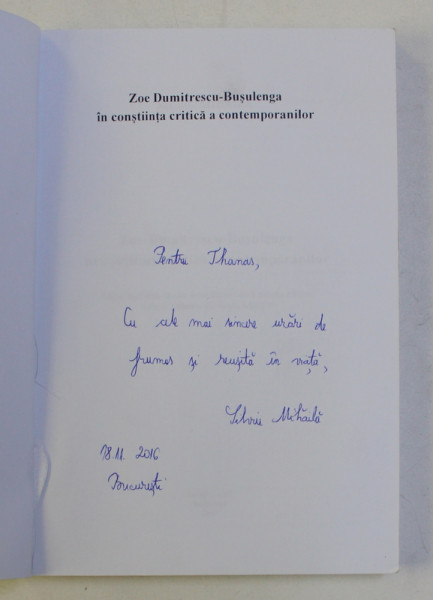 Zoe Dumitrescu-Bușulenga
în conștiința critică a contemporanilor
Pentru Thanas,
Cu cele mai sincere urări de
frumos și reușită în viață,
Silviu Mihăilă
18.11. 2016
București